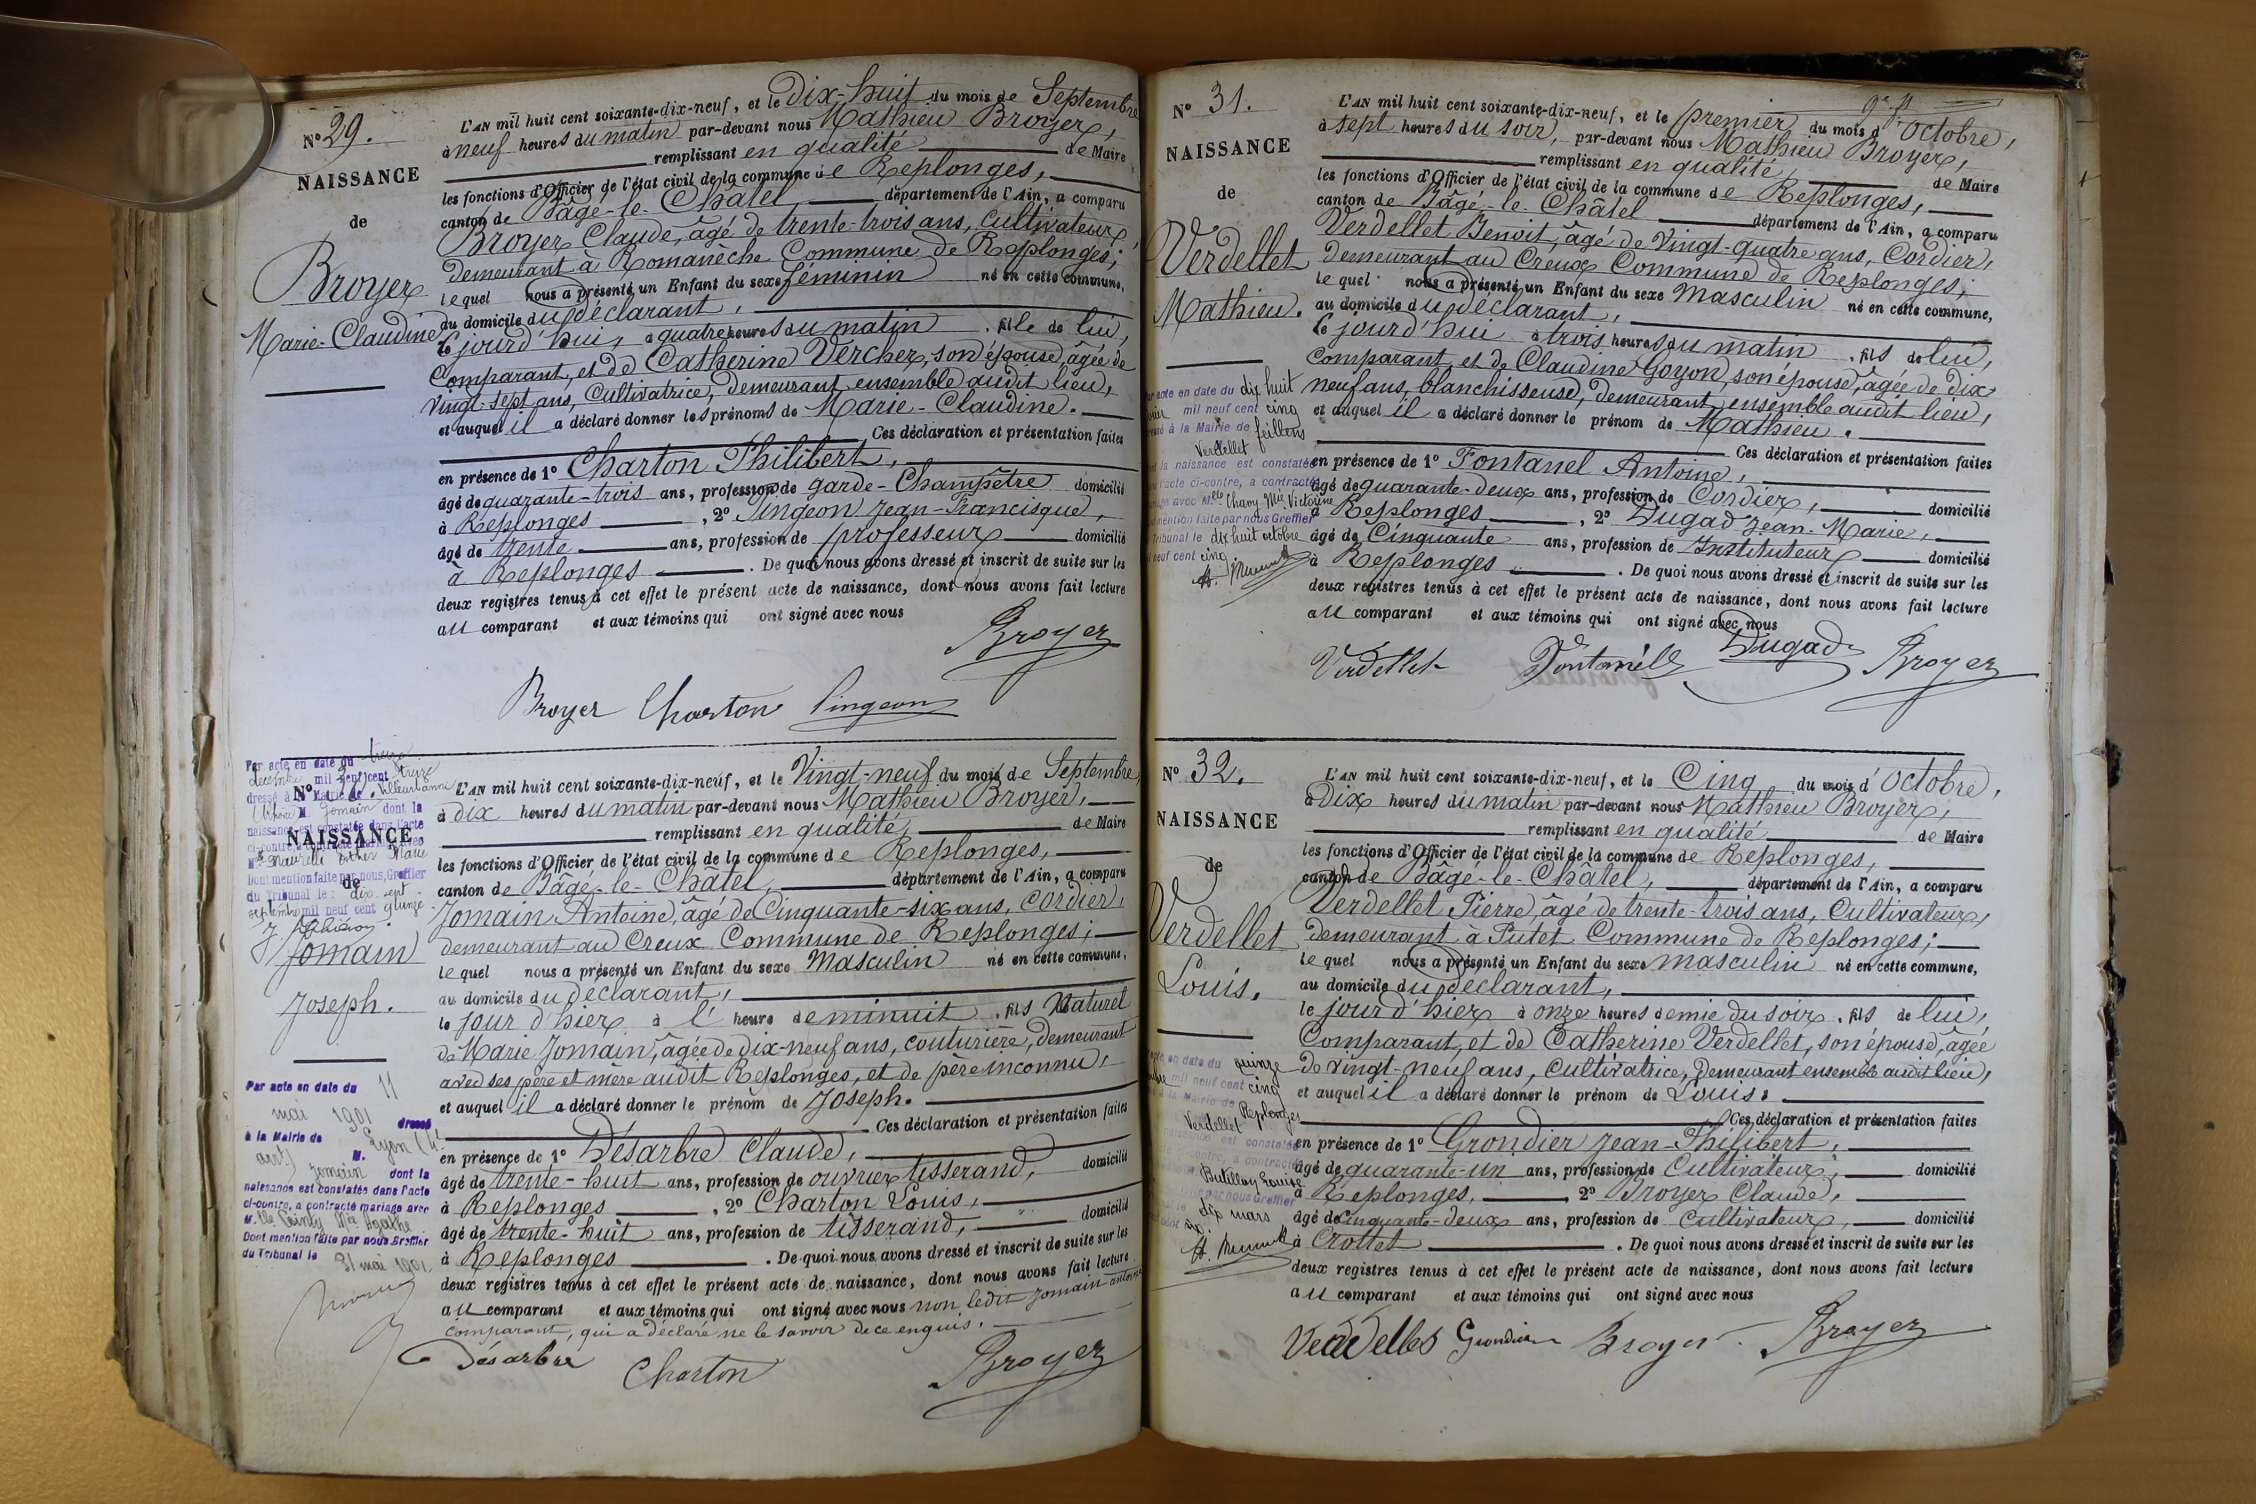 N° 29.
NAISSANCE
de
Broyer
Marie-Claudine
L'AN mil huit cent soixante-dix-neuf, et le Dix-huit du mois de Septembre
à neuf heures du matin par-devant nous Mathieu Broyer,
remplissant en qualité de Maire
les fonctions d'Officier de l'état civil de la commune de Replonges,
canton de Bâgé-le-Châtel, département de l'Ain, a comparu
Broyer Claude, âgé de trente-trois ans, cultivateur,
demeurant à Romanèche Commune de Replonges;
lequel nous a présenté un Enfant du sexe féminin né en cette commune,
au domicile du déclarant,
le jourd'hui, à quatre heures du matin, fille de lui,
Comparant, et de Catherine Vercher, son épouse, âgée de
vingt-sept ans, Cultivatrice, demeurant ensemble audit lieu,
et auquel il a déclaré donner les prénoms de Marie-Claudine.
Ces déclaration et présentation faites
en présence de 1° Charton Philibert,
âgé de quarante-trois ans, profession de garde-Champêtre domicilié
à Replonges, 2° Pingeon Jean-Francisque,
âgé de trente ans, profession de professeur domicilié
à Replonges. De quoi nous avons dressé et inscrit de suite sur les
deux registres tenus à cet effet le présent acte de naissance, dont nous avons fait lecture
au comparant et aux témoins qui ont signé avec nous
Broyer
Broyer Charton Pingeon
N°
NAISSANCE
de
Jomain
Joseph.
Par acte en date du treize
décembre mil neuf cent treize
dressé à la Mairie de Villeurbanne
(Rhône) M. Jomain dont la
naissance est constatée dans l'acte
ci-contre, a contracté mariage avec
Dont mention faite par nous, Greffier
du Tribunal le: dix-sept
septembre mil neuf cent quinze
Par acte en date du 11
mai 1901 dressé
à la Mairie de Lyon
arr.) M.
Jomain dont la
naissance est constatée dans l'acte
ci-contre, a contracté mariage avec
M.lle Pointy Ma Agathe
Dont mention faite par nous Greffier
du Tribunal le
31 mai 1901
L'AN mil huit cent soixante-dix-neuf, et le Vingt-neuf du mois de Septembre,
à dix heures du matin par-devant nous Mathieu Broyer,
remplissant en qualité, de Maire
les fonctions d'Officier de l'état civil de la commune de Replonges,
canton de Bâgé-le-Châtel, département de l'Ain, a comparu
Jomain Antoine, âgé de Cinquante-six ans, cordier,
demeurant au Creux Commune de Replonges;
lequel nous a présenté un Enfant du sexe Masculin né en cette commune,
au domicile du déclarant,
le jour d'hier à l'heure de minuit, fils Naturel
de Marie Jomain, âgée de dix-neuf ans, couturière, demeurant
avec ses père et mère audit Replonges, et de père inconnu,
et auquel il a déclaré donner le prénom de Joseph.
Ces déclaration et présentation faites
en présence de 1° Désarbre Claude,
âgé de trente-huit ans, profession de ouvrier tisserand, domicilié
à Replonges, 2° Charton Louis,
âgé de trente-huit ans, profession de tisserand, domicilié
à Replonges. De quoi nous avons dressé et inscrit de suite sur les
deux registres tenus à cet effet le présent acte de naissance, dont nous avons fait lecture
au comparant et aux témoins qui ont signé avec nous non ledit Jomain antoine
comparant, qui a déclaré ne le savoir de ce enquis.
Désarbre Charton Broyer
N° 31.
NAISSANCE
de
Verdellet
Mathieu.
acte en date du dix huit
mil neuf cent cinq
à la Mairie de feillens
Verdellet
la naissance est constatée
l'acte ci-contre, a contracté
avec M.elle Chavy Mie Victorine
mention faite par nous Greffier
Tribunal le dix huit octobre
neuf cent cinq
L'AN mil huit cent soixante-dix-neuf, et le premier du mois d'Octobre,
à sept heures du soir, par-devant nous Mathieu Broyer,
remplissant en qualité, de Maire
les fonctions d'Officier de l'état civil de la commune de Replonges,
canton de Bâgé-le-Châtel département de l'Ain, a comparu
Verdellet Benoit, âgé de Vingt-quatre ans, Cordier,
demeurant au Creux Commune de Replonges;
lequel nous a présenté un Enfant du sexe Masculin né en cette commune,
au domicile du déclarant,
le jourd'hui à trois heures du matin, fils de lui,
Comparant, et de Claudine Goyon, son épouse, âgée de dix-
neuf ans, blanchisseuse, demeurant ensemble audit lieu,
et auquel il a déclaré donner le prénom de Mathieu.
Ces déclaration et présentation faites
en présence de 1° Fontanel Antoine,
âgé de quarante-deux ans, profession de Cordier, domicilié
à Replonges, 2° Dugad Jean-Marie,
âgé de Cinquante ans, profession de Instituteur domicilié
à Replonges. De quoi nous avons dressé et inscrit de suite sur les
deux registres tenus à cet effet le présent acte de naissance, dont nous avons fait lecture
au comparant et aux témoins qui ont signé avec nous
Verdellet Fontanelle Dugad Broyer
N° 32.
NAISSANCE
de
Verdellet
Louis.
en date du quinze
mil neuf cent cinq
Mairie de Replonges
Verdellet
naissance est constatée
contre, a contracté
Butillon Louise
par nous Greffier
dix mars
L'AN mil huit cent soixante-dix-neuf, et le Cinq du mois d'Octobre,
à Dix heures du matin par-devant nous Mathieu Broyer,
remplissant en qualité de Maire
les fonctions d'Officier de l'état civil de la commune de Replonges,
canton de Bâgé-le-Châtel, département de l'Ain, a comparu
Verdellet Pierre, âgé de trente-trois ans, Cultivateur,
demeurant à Putet Commune de Replonges;
lequel nous a présenté un Enfant du sexe masculin né en cette commune,
au domicile du déclarant,
le jour d'hier à onze heures demie du soir, fils de lui,
Comparant, et de Catherine Verdellet, son épouse, âgée
de vingt-neuf ans, Cultivatrice, Demeurant ensemble audit lieu,
et auquel il a déclaré donner le prénom de Louis.
Ces déclaration et présentation faites
en présence de 1° Grondier Jean-Philibert,
âgé de quarante-un ans, profession de Cultivateur, domicilié
à Replonges, 2° Broyer Claude,
âgé de Cinquante-deux ans, profession de Cultivateur, domicilié
à Crottet. De quoi nous avons dressé et inscrit de suite sur les
deux registres tenus à cet effet le présent acte de naissance, dont nous avons fait lecture
au comparant et aux témoins qui ont signé avec nous
Verdelles Grondier Broyer Broyer